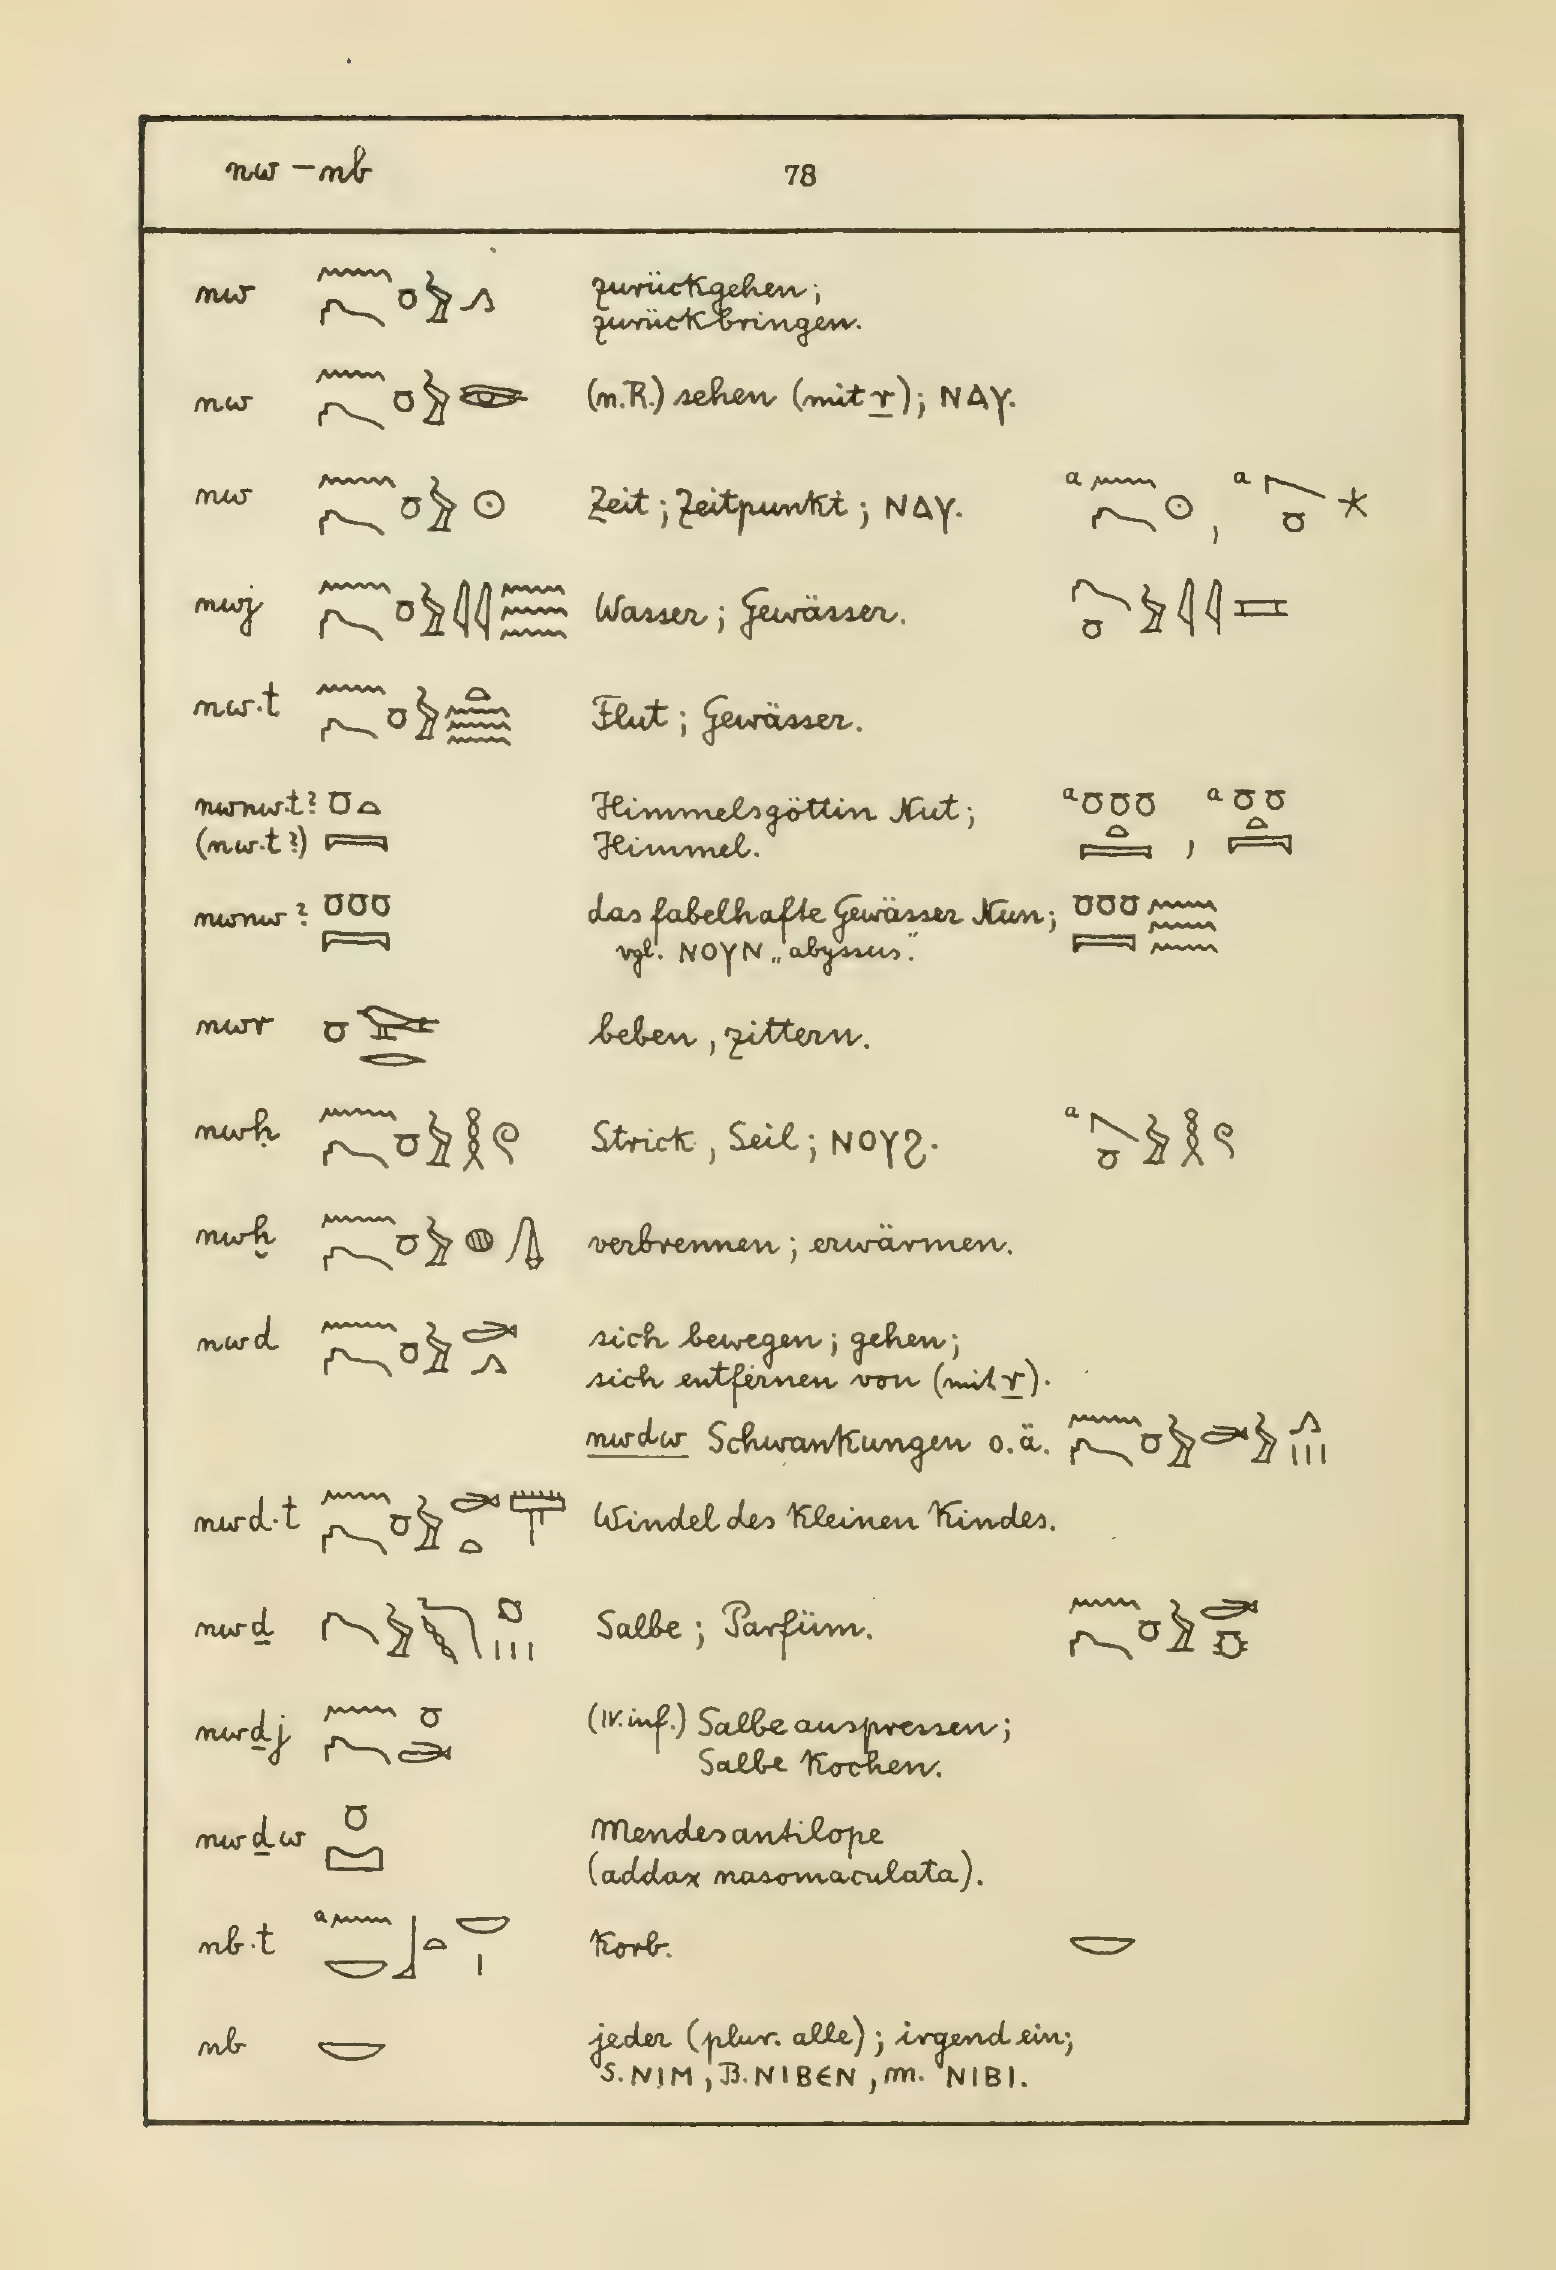 nw – nb 78
nw zurückgehen;
zurückbringen.
nw (n.R.) sehen (mit r); ⲚⲀⲨ.
nw Zeit; Zeitpunkt; ⲚⲀⲨ. a , a
nwj Wasser; Gewässer.
nw·t Flut; Gewässer.
nwnw·t? Himmelsgöttin Nut; a , a
(nw·t?) Himmel.
nwnw? das fabelhafte Gewässer Nun;
vgl. ⲚⲞⲨⲚ „abyssus“.
nwr beben, zittern.
nwḥ Strick, Seil; ⲚⲞⲨϨ. a
nwḫ verbrennen; erwärmen.
nwd sich bewegen; gehen;
sich entfernen von (mit r).
nwdw Schwankungen o.ä.
nwd·t Windel des kleinen Kindes.
nwḏ Salbe; Parfüm.
nwḏj (IV. inf.) Salbe auspressen;
Salbe kochen.
nwḏw Mendesantilope
(addax nasomaculata).
nb·t a Korb.
nb jeder (plur. alle); irgend ein;
S. ⲚⲒⲘ, B. ⲚⲒⲂⲈⲚ, m. ⲚⲒⲂⲒ.